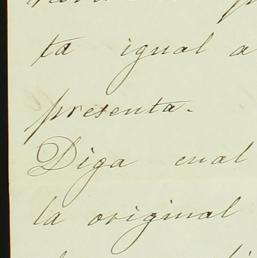 ta igual a
presenta.
Diga cual
la original